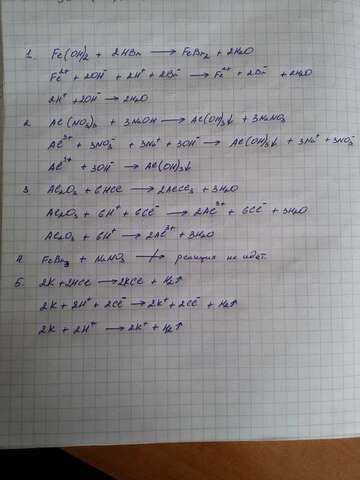 1. Fe(OH)2 + 2HBr → FeBr2 + 2H2O
Fe2+ + 2OH- + 2H+ + 2Br- → Fe2+ + 2Br- + 2H2O
2H+ + 2OH- → 2H2O
2. Al(NO3)3 + 3NaOH → Al(OH)3↓ + 3NaNO3
Al3+ + 3NO3- + 3Na+ + 3OH- → Al(OH)3↓ + 3Na+ + 3NO3-
Al3+ + 3OH- → Al(OH)3↓
3. Al2O3 + 6HCl → 2AlCl3 + 3H2O
Al2O3 + 6H+ + 6Cl- → 2Al3+ + 6Cl- + 3H2O
Al2O3 + 6H+ → 2Al3+ + 3H2O
4. FeBr3 + NaNO3 ↛ реакция не идет.
5. 2K + 2HCl → 2KCl + H2↑
2K + 2H+ + 2Cl- → 2K+ + 2Cl- + H2↑
2K + 2H+ → 2K+ + H2↑